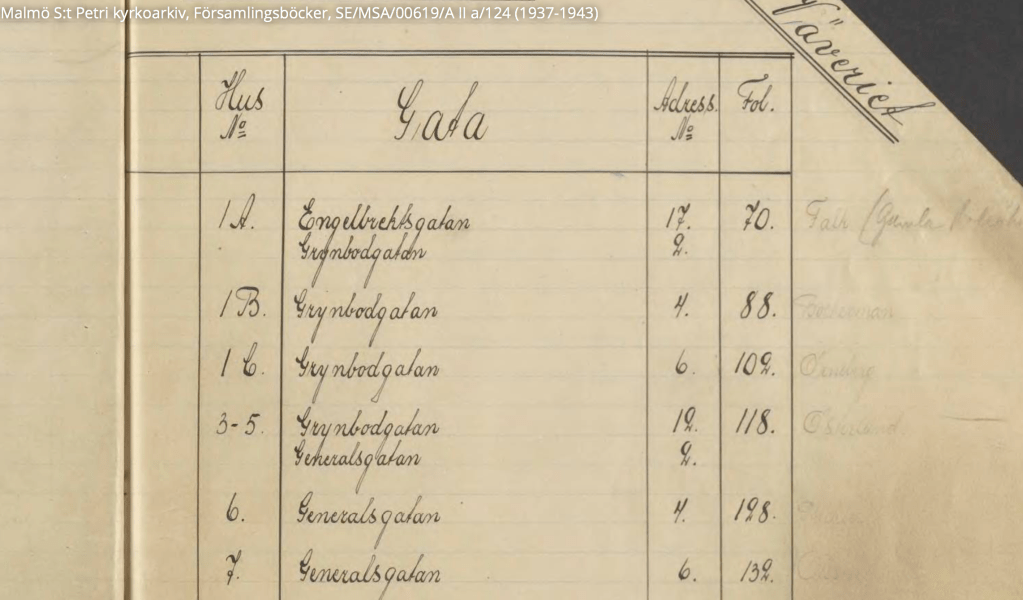 Malmö S:t Petri kyrkoarkiv, Församlingsböcker, SE/MSA/00619/A II a/124 (1937-1943)
Väveriet
Hus No Gata Adress. No Fol.
1 A. Engelbrektsgatan 17. 70.
Grynbodgatan 2.
1 B. Grynbodgatan 4. 88.
1 C. Grynbodgatan 6. 102.
3-5. Grynbodgatan 12. 118.
Generalsgatan 2.
6. Generalsgatan 4. 128.
7. Generalsgatan 6. 132.